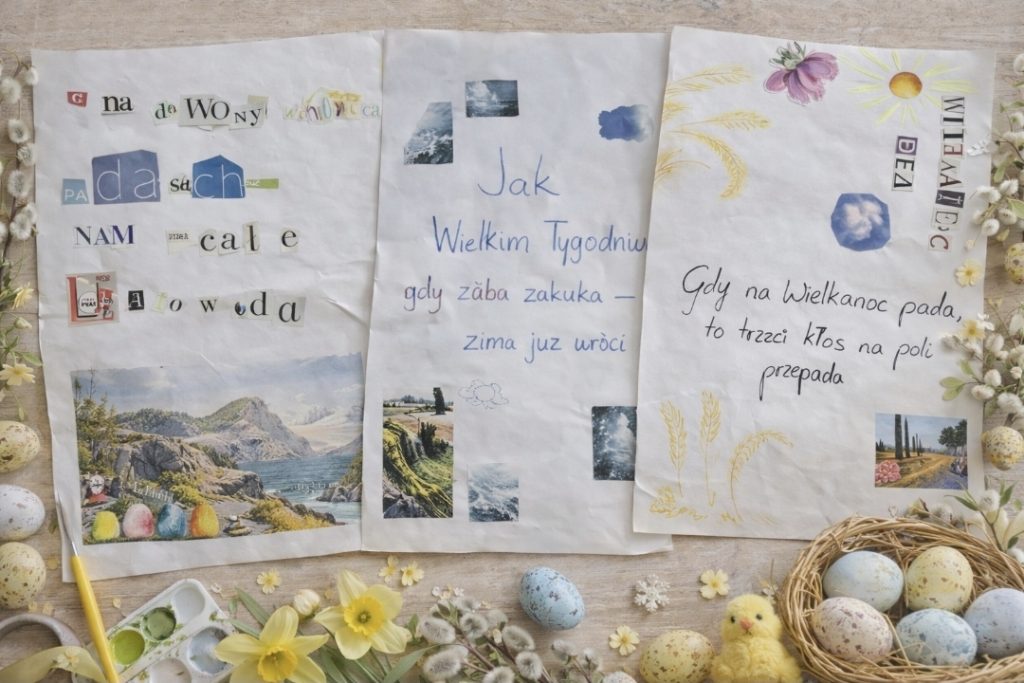 G na doWONy
PA da sach
NAM cale
Atowoda
Jak
Wielkim Tygodniu
gdy zăba zakuka —
zima juz wròci
Gdy na Wielkanoc pada,
to trzzci kłos na poli
przepada